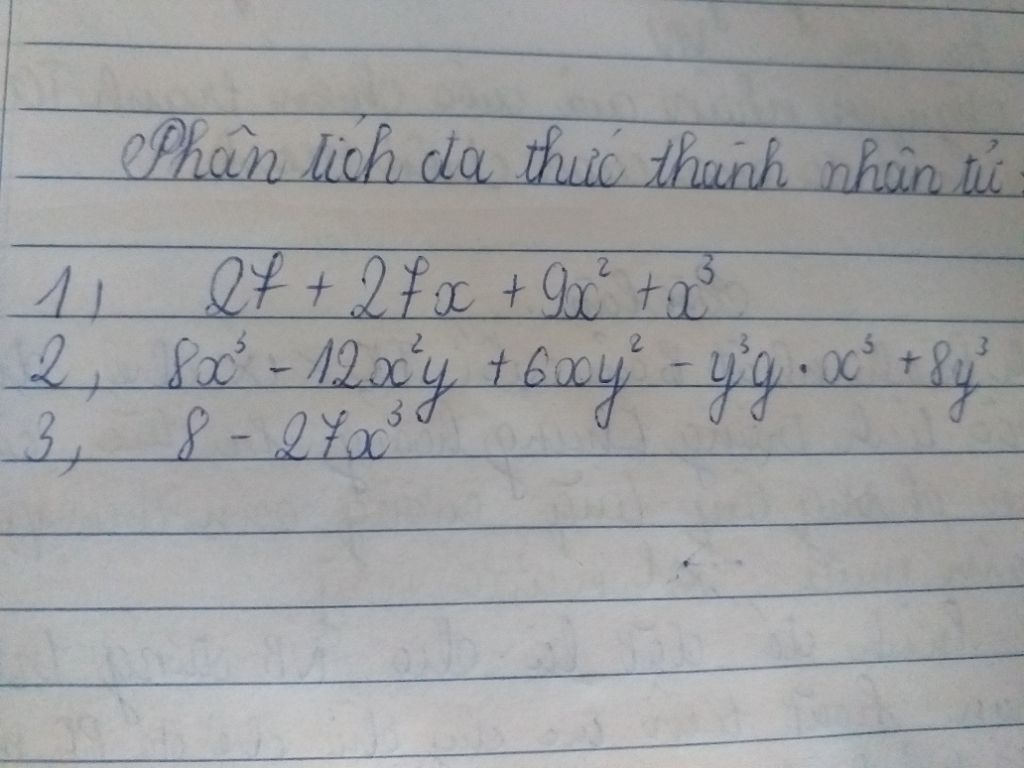 Phân tích đa thức thành nhân tử:
1, 27 + 27x + 9x² + x³
2, 8x³ - 12x²y + 6xy² - y³g . x³ + 8y³
3, 8 - 27x³